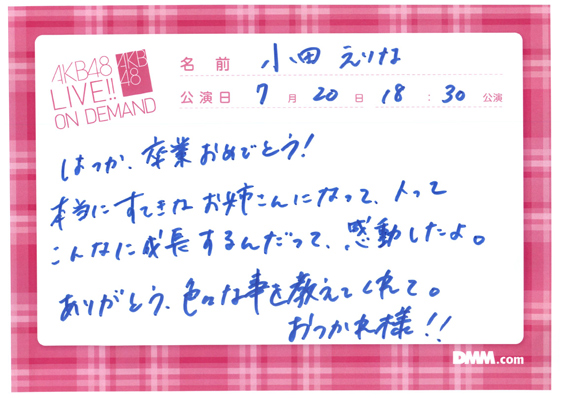 AKB48
LIVE!!
ON DEMAND
AKB
48
名前 小田 えりな
公演日 7月20日 18:30公演
はっか、卒業おめでとう!
本当にすてきなお姉さんになって、人って
こんなに成長するんだって、感動したよ。
ありがとう、色々な事を教えてくれて。
おつかれ様!!
DMM.com